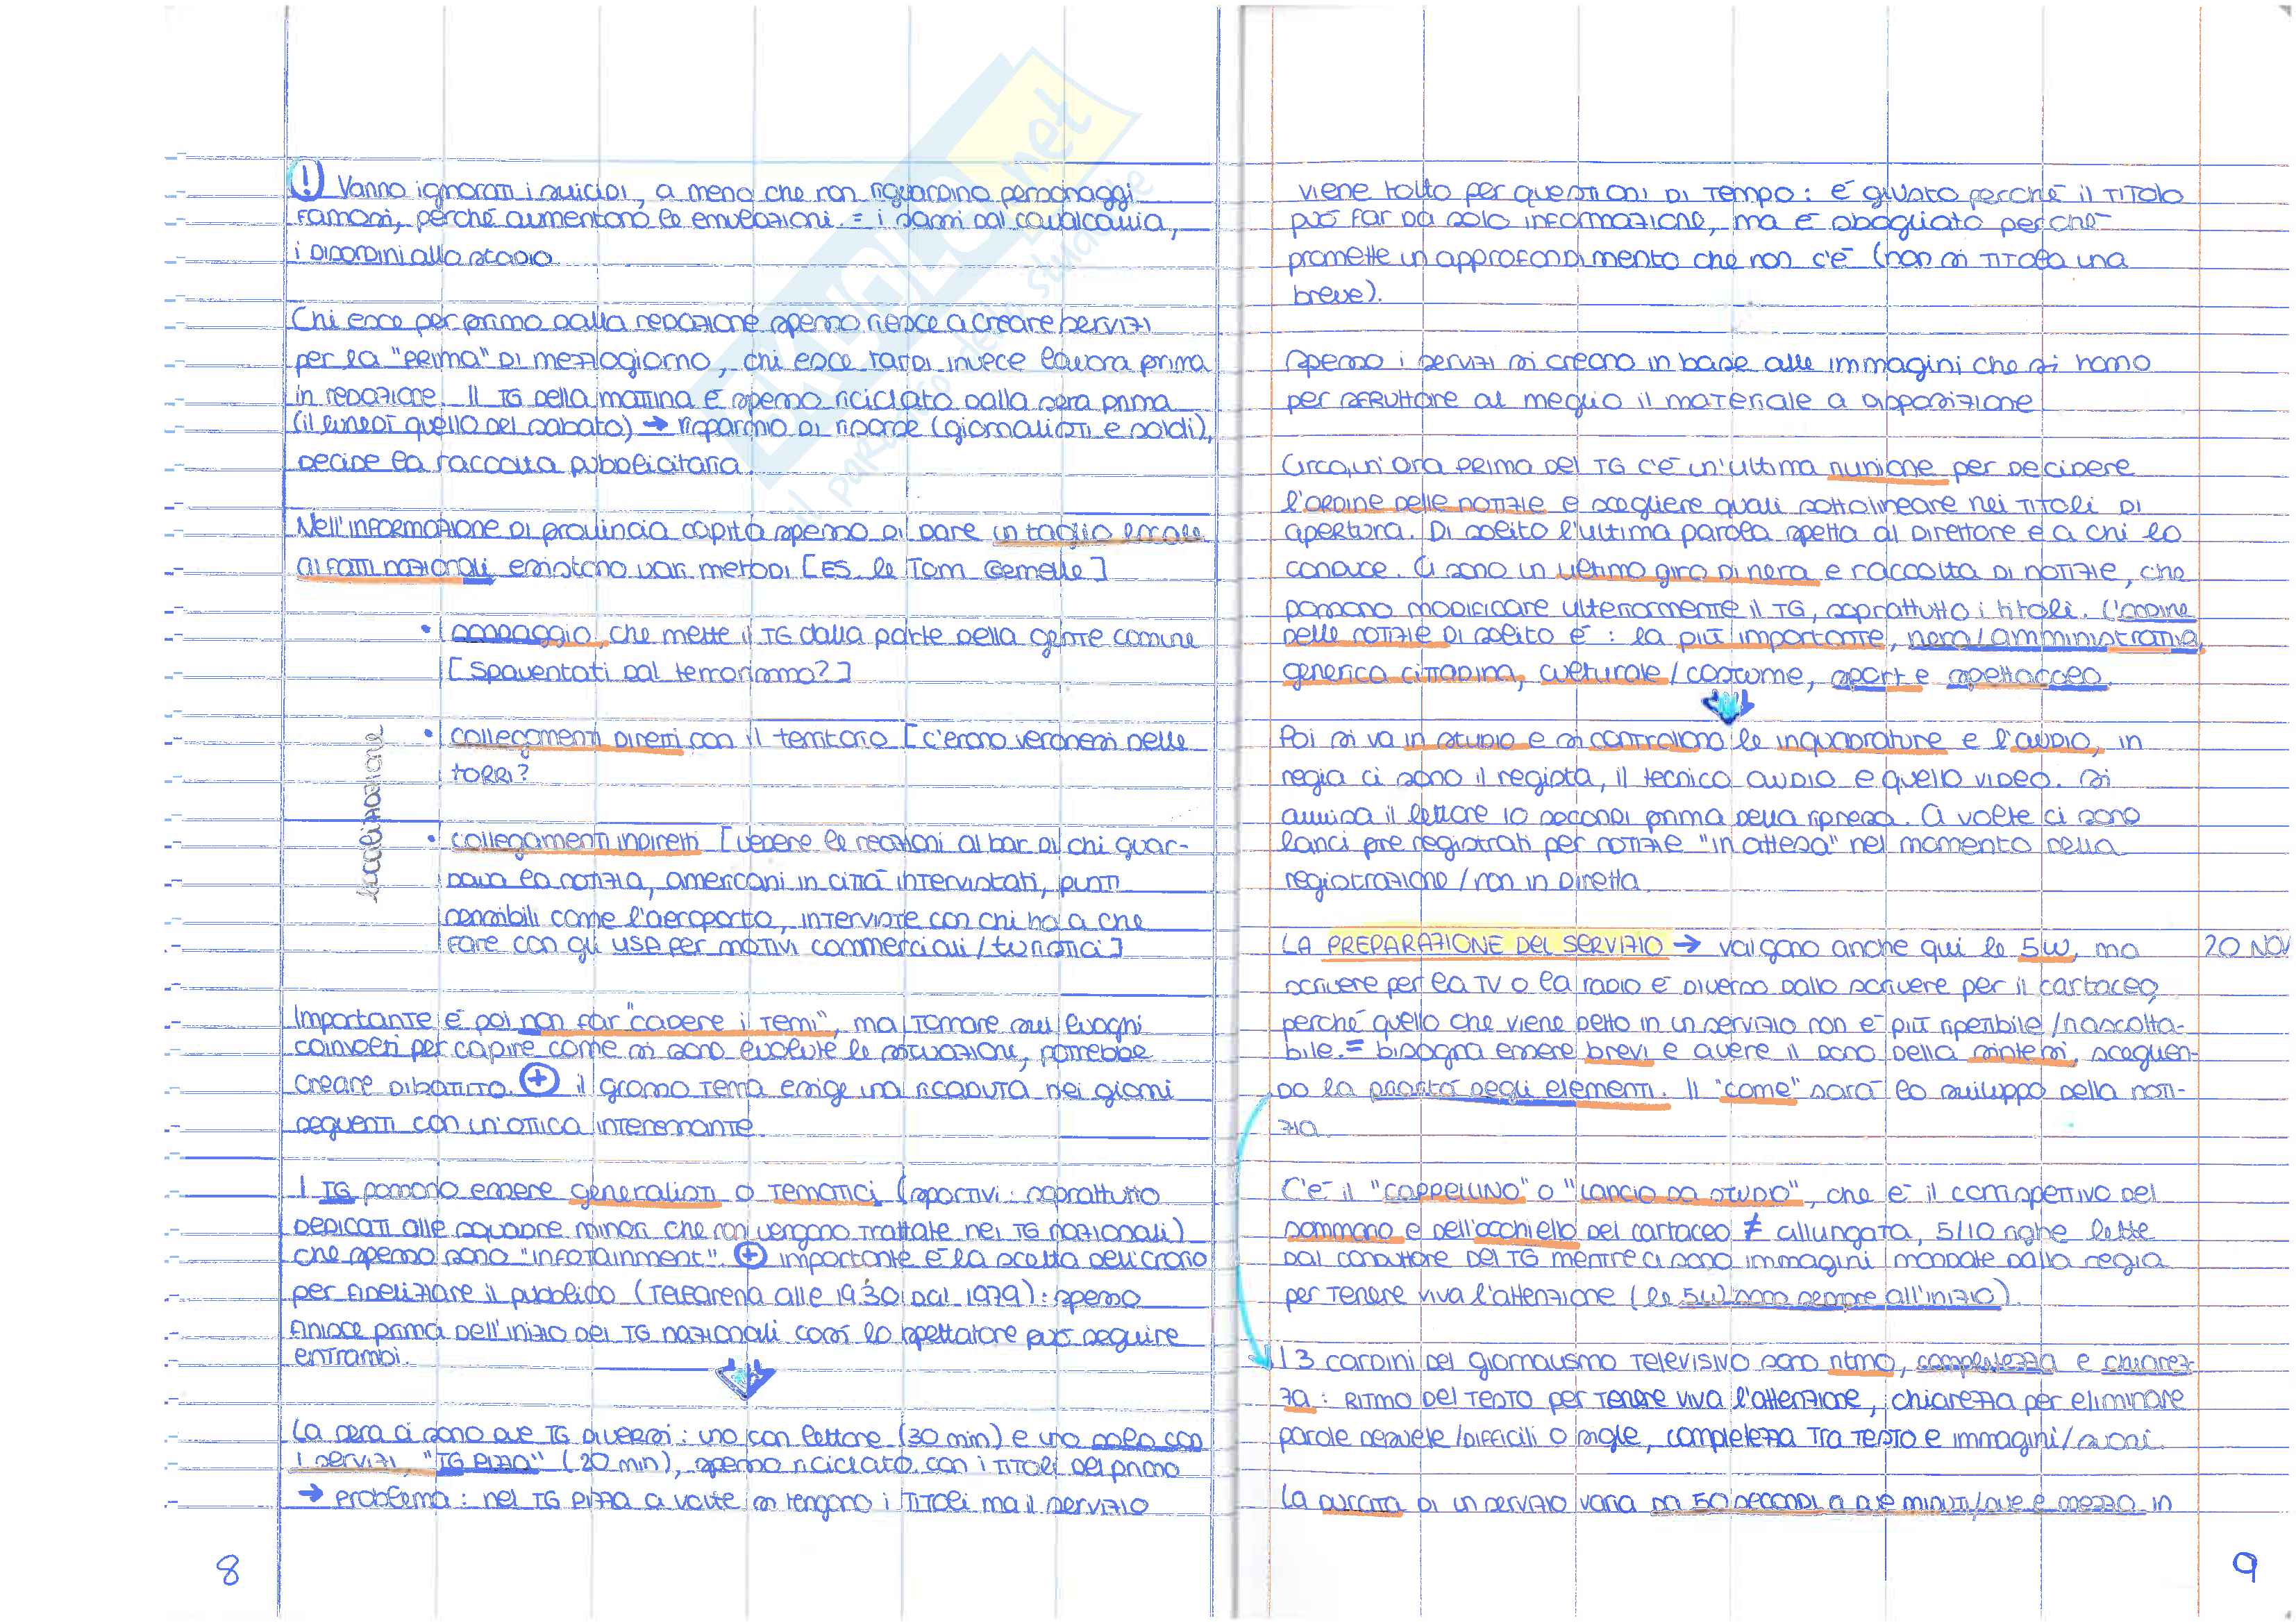 ! Vanno ignorati i suicidi, a meno che non riguardino personaggi
famosi, perché aumentano le emulazioni. = i sassi dal cavalcavia,
i disordini allo stadio
Chi esce per primo dalla redazione spesso riesce a creare servizi
per la "prima" di mezzogiorno, chi esce tardi invece lavora prima
in redazione. Il TG della mattina è spesso riciclato dalla sera prima
(il lunedì quello del sabato) → risparmio di risorse (giornalisti e soldi),
decide la raccolta pubblicitaria.
Nell'informazione di provincia capita spesso di dare un taglio locale
ai fatti nazionali esistono vari metodi [ES. le Torri Gemelle]
localizzazione
• sondaggio, che mette il TG dalla parte della gente comune
[Spaventati dal terrorismo?]
• collegamenti diretti con il territorio [c'erano veronesi nelle
torri?
• collegamenti indiretti [vedere le reazioni al bar di chi guar-
dava la notizia, americani in città intervistati, punti
sensibili come l'aeroporto, interviste con chi ha a che
fare con gli USA per motivi commerciali/turistici]
Importante è poi non far "cadere i temi", ma tornare sui luoghi
coinvolti per capire come si sono evolute le situazioni, potrebbe
creare dibattito. + il grosso tema esige una ricaduta nei giorni
seguenti con un'ottica interessante.
I TG possono essere generalisti o tematici (sportivi: soprattutto
dedicati alle squadre minori che non vengono trattate nei TG nazionali)
che spesso sono "infotainment". + importante è la scelta dell'orario
per fidelizzare il pubblico (Telearena alle 19.30 dal 1979): spesso
finisce prima dell'inizio dei TG nazionali così lo spettatore può seguire
entrambi.
La sera ci sono due TG diversi: uno con lettore (30 min) e uno solo con
i servizi, "TG pizza" (20 min), spesso riciclato con i titoli del primo
→ problema: nel TG pizza a volte si tengono i titoli ma il servizio
8
viene tolto per questioni di tempo: è giusto perché il titolo
può far da solo informazione, ma è sbagliato perché
promette un approfondimento che non c'è (non si titola una
breve).
Spesso i servizi si creano in base alle immagini che si hanno
per sfruttare al meglio il materiale a disposizione
Circa un'ora prima del TG c'è un'ultima riunione per decidere
l'ordine delle notizie e scegliere quali sottolineare nei titoli di
apertura. Di solito l'ultima parola spetta al direttore e a chi lo
conduce. Ci sono un ultimo giro di nera e raccolta di notizie, che
possono modificare ulteriormente il TG, soprattutto i titoli. L'ordine
delle notizie di solito è: la più importante, nera/amministrativa,
generica cittadina, culturale/costume, sport e spettacolo.
Poi si va in studio e si controllano le inquadrature e l'audio, in
regia ci sono il regista, il tecnico audio e quello video. Si
avvisa il lettore 10 secondi prima della ripresa. A volte ci sono
lanci pre registrati per notizie "in attesa" nel momento della
registrazione/non in diretta
LA PREPARAZIONE DEL SERVIZIO → valgono anche qui le 5W, ma
20 NOV
scrivere per la TV o la radio è diverso dallo scrivere per il cartaceo,
perché quello che viene detto in un servizio non è più ripetibile/riascolta-
bile. = bisogna essere brevi e avere il dono della sintesi, sceglien-
do la priorità degli elementi. Il "come" sarà lo sviluppo della noti-
zia.
C'è il "cappellino" o "lancio da studio", che è il corrispettivo del
sommario e dell'occhiello del cartaceo ≠ allungata, 5/10 righe lette
dal conduttore del TG mentre ci sono immagini mandate dalla regia
per tenere viva l'attenzione (le 5W sono sempre all'inizio).
I 3 cardini del giornalismo televisivo sono ritmo, completezza e chiarez-
za: ritmo del testo per tenere viva l'attenzione, chiarezza per eliminare
parole desuete/difficili o sigle, completezza tra testo e immagini/suoni.
La durata di un servizio varia da 50 secondi a due minuti/due e mezzo in
9